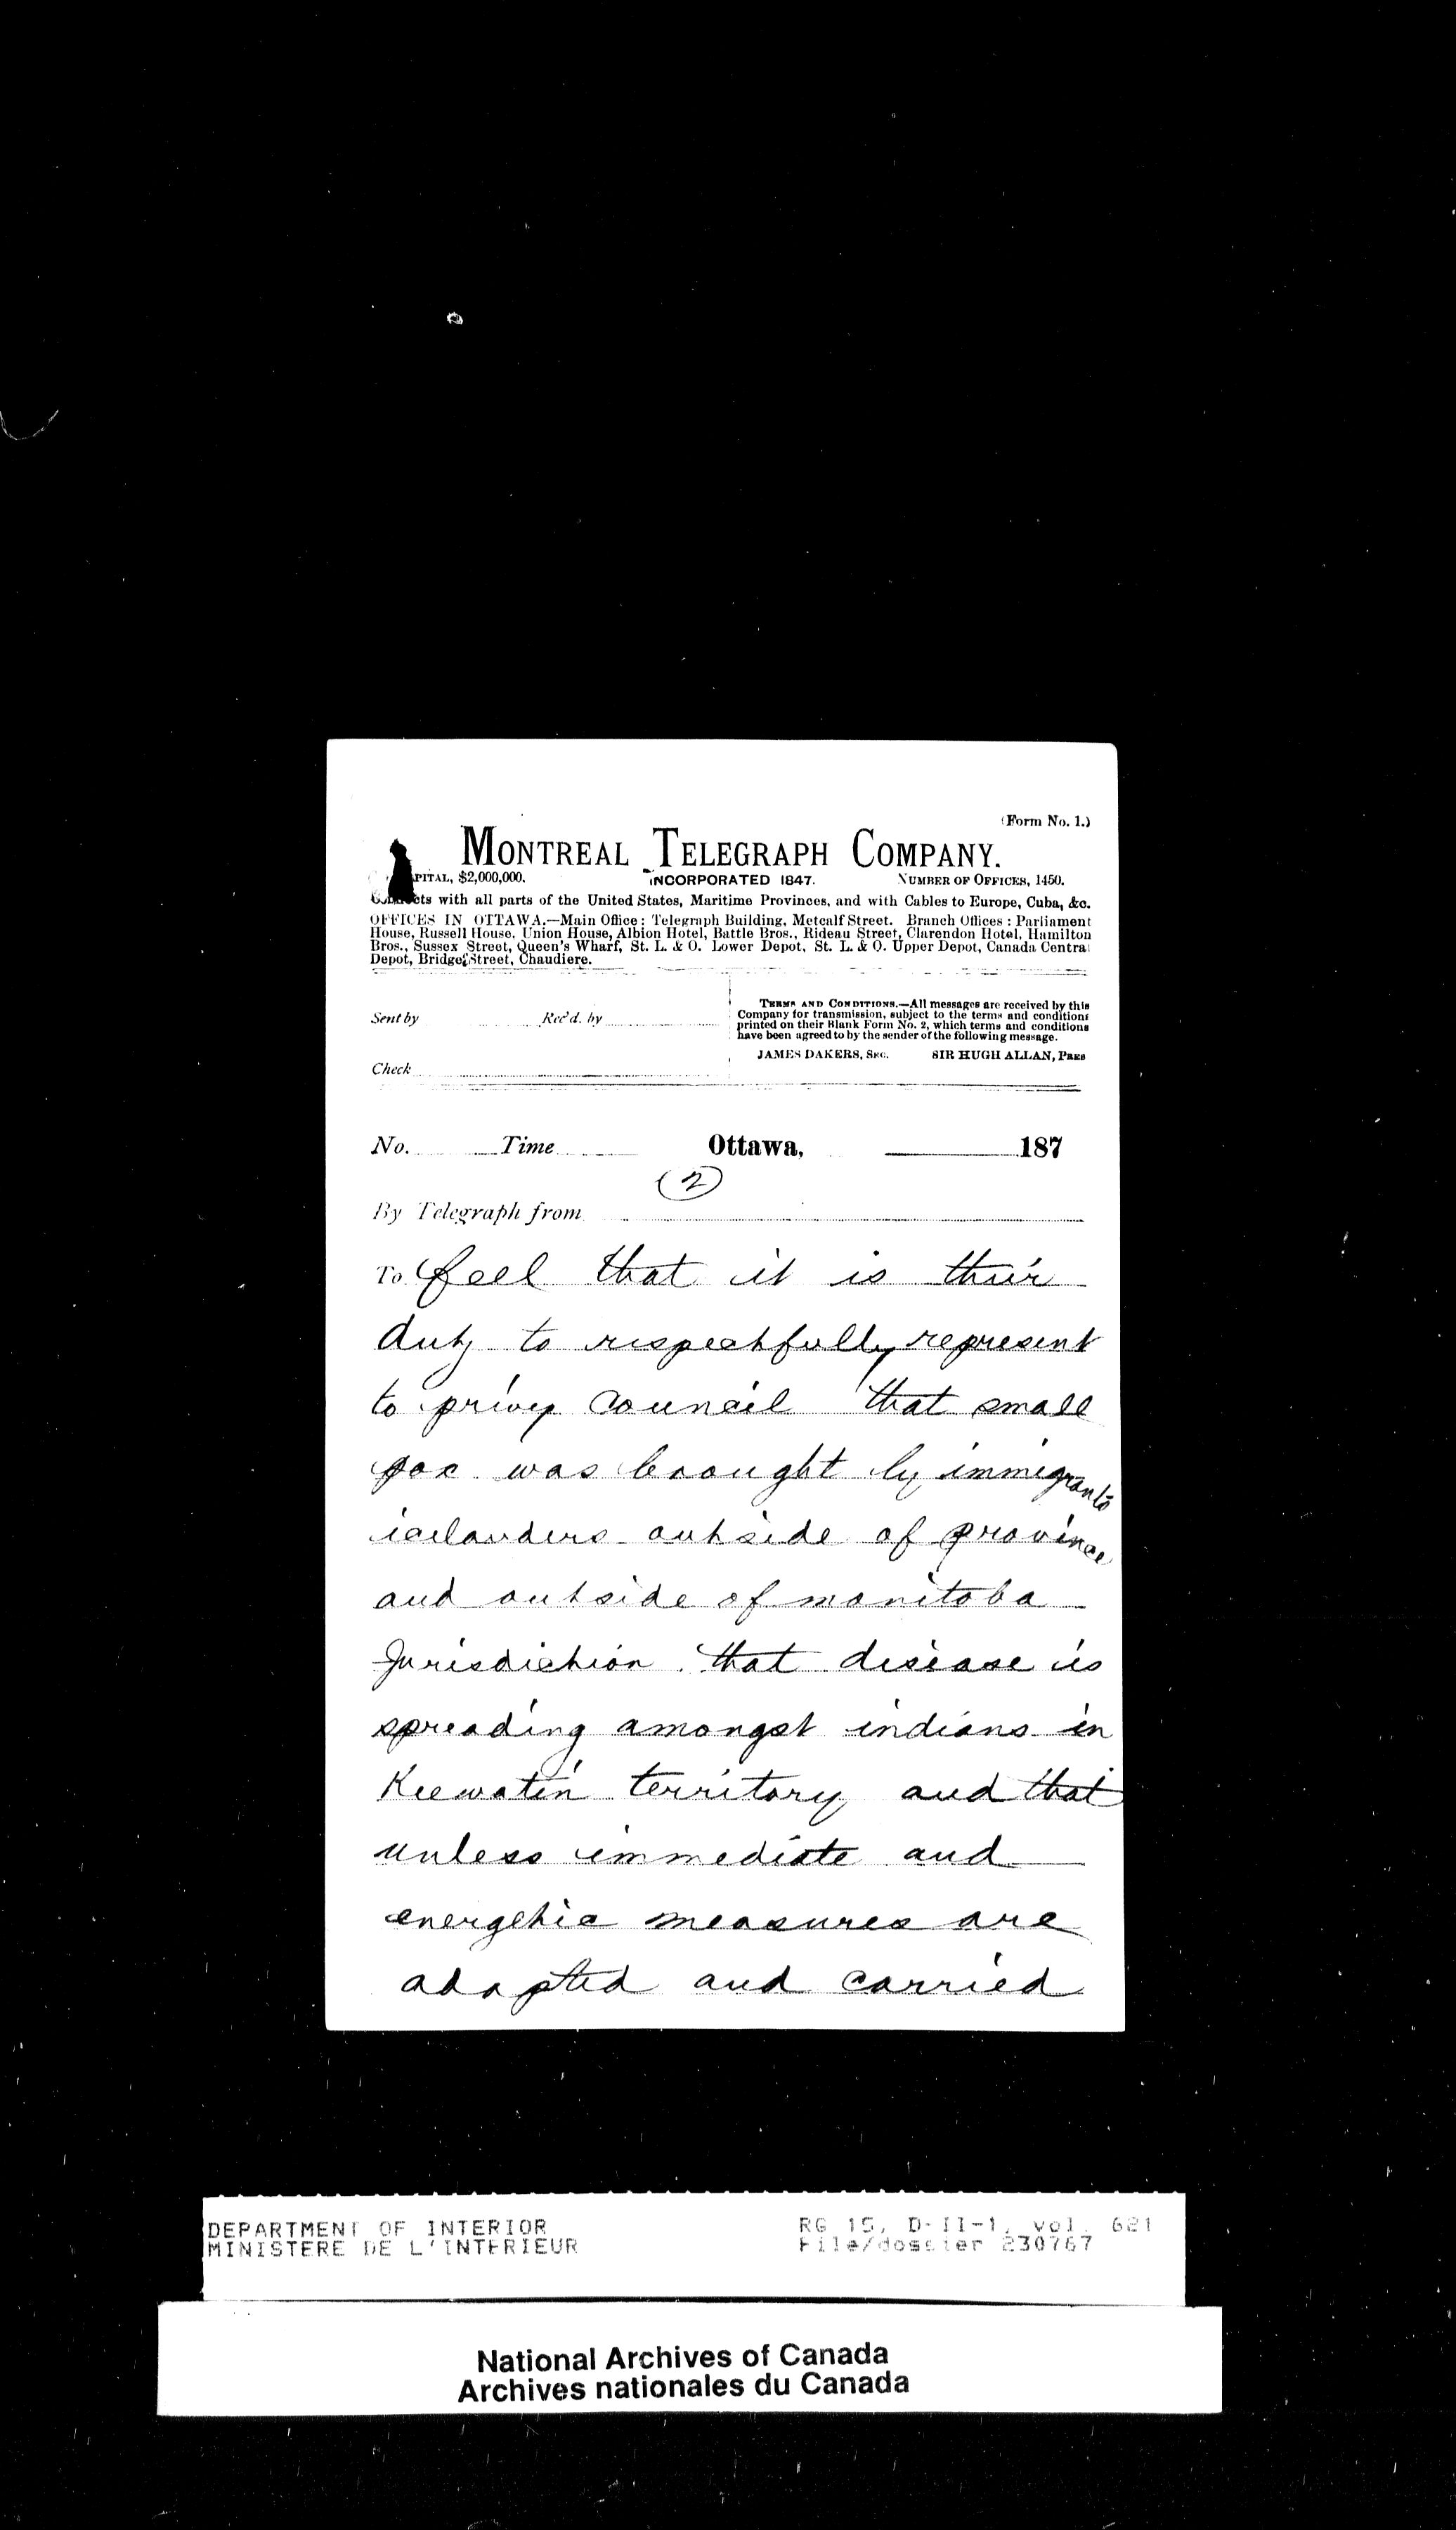 (Form No. 1.)
MONTREAL TELEGRAPH COMPANY.
PITAL, $2,000,000. INCORPORATED 1847. NUMBER OF OFFICES, 1450.
with all parts of the United States, Maritime Provinces, and with Cables to Europe, Cuba, &c.
OFFICES IN OTTAWA.—Main Office: Telegraph Building, Metcalf Street. Branch Offices: Parliament
House, Russell House, Union House, Albion Hotel, Battle Bros., Rideau Street, Clarendon Hotel, Hamilton
Bros., Sussex Street, Queen's Wharf, St. L. & O. Lower Depot, St. L. & O. Upper Depot, Canada Central
Depot, Bridge Street, Chaudiere.
Sent by Rec'd. by
Check
TERMS AND CONDITIONS.—All messages are received by this
Company for transmission, subject to the terms and conditions
printed on their Blank Form No. 2, which terms and conditions
have been agreed to by the sender of the following message.
JAMES DAKERS, SEC. SIR HUGH ALLAN, PRES
No. Time Ottawa, 187
(2)
By Telegraph from
To feel that it is their
duty to respectfully represent
to privy council that small
pox was brought by immigrants
icelanders outside of province
and outside of manitoba
Jurisdiction that disease is
spreading amongst indians in
Keewatin territory and that
unless immediate and
energetic measures are
adopted and carried
DEPARTMENT OF INTERIOR
MINISTERE DE L'INTERIEUR
RG 15, D-II-1, vol. 621
File/dossier 230767
National Archives of Canada
Archives nationales du Canada